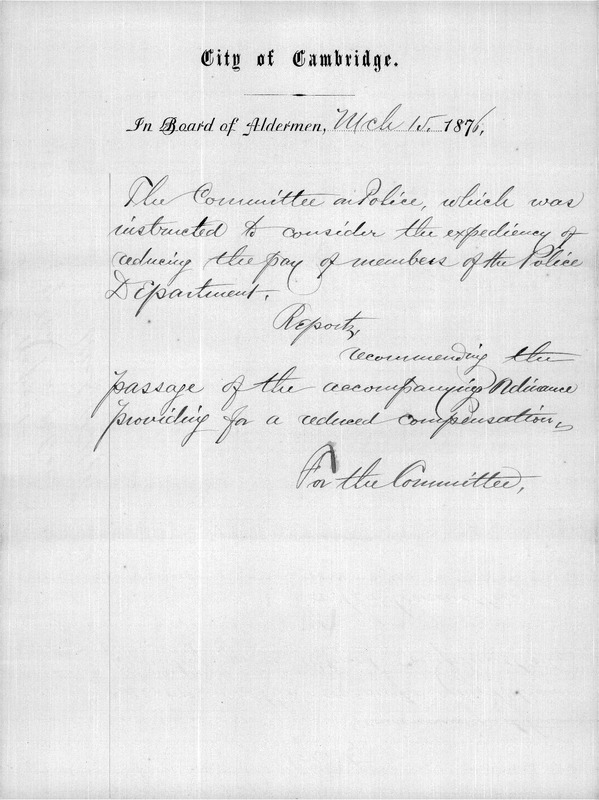 City of Cambridge.
In Board of Aldermen, Mch 15. 1876.
The Committee on Police, which was
instructed to consider the expediency of
reducing the pay of members of the Police
Department.
Reports,
recommending the
passage of the accompanying Ordinance
providing for a reduced compensation,
For the Committee,